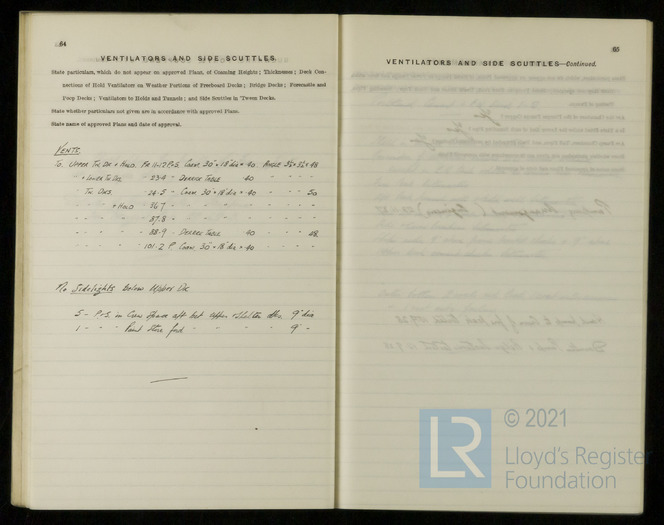 64
VENTILATORS AND SIDE SCUTTLES.
State particulars, which do not appear on approved Plans, of Coaming Heights; Thicknesses; Deck Con-
nections of Hold Ventilators on Weather Portions of Freeboard Decks; Bridge Decks; Forecastle and
Poop Decks; Ventilators to Holds and Tunnels; and Side Scuttles in 'Tween Decks.
State whether particulars not given are in accordance with approved Plans.
State name of approved Plans and date of approval.
VENTS
To. UPPER TN. DK + HOLD. FR 11-12 P+S. COAM. 30" × 18" dia × .40 ANGLE 3½ × 3½ × .48
" + LOWER TN DK. " 23-4 - DERRICK TABLE .40 " " "
" TN. DKS. " 24-5 - COAM. 30" × 18" dia × .40 " " .50
" " + HOLD " 36 7 " " " " " "
" " " 57.8 " " " " " "
" " " 88.9 - DERRICK TABLE .40 " " .48
" " " 101-2 P. COAM. 30" × 18" dia × .40 " " "
No Sidelights Below Upper DK
5 - P+S. in Crew Space aft bet upper + Shelter dks. 9" dia
1 - " " Paint Store ford " " " " 9" "
65
VENTILATORS AND SIDE SCUTTLES—Continued.
LR
© 2021
Lloyd's Register
Foundation